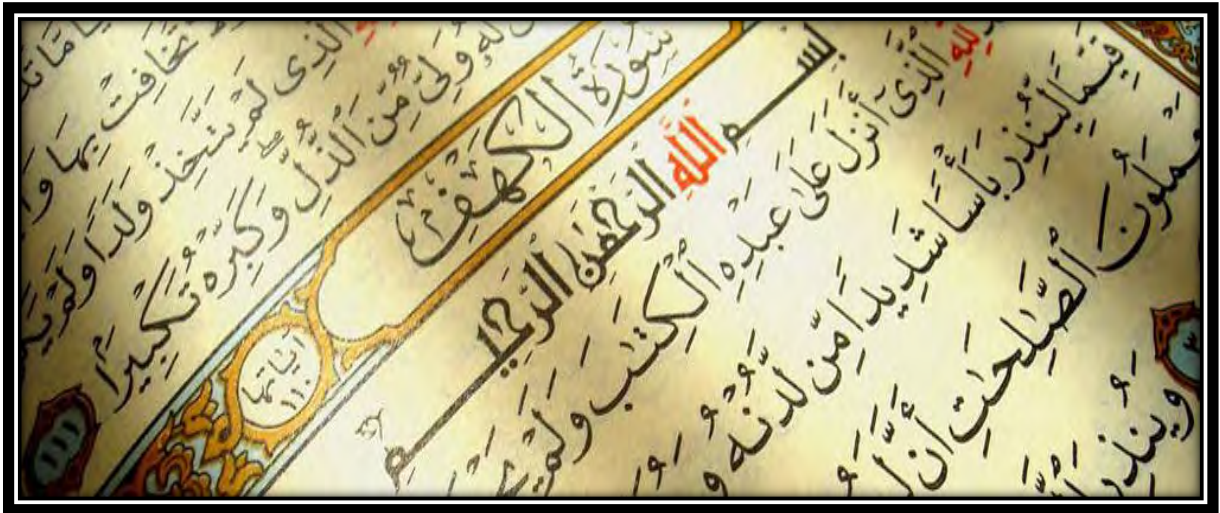 مَّا
تُخَافِتْ بِهَا وَ
الَّذِى لَمْ يَتَّخِذْ وَلَدًا وَلَمْ
لَّهُ وَلِىٌّ مِّنَ ٱلذُّلِّ وَكَبِّرْهُ تَكْبِيرًا ١١١
سُورَةُ الْكَهْفِ
آيَاتُهَا ١١٠
بِسْمِ اللَّهِ الرَّحْمَٰنِ الرَّحِيمِ
لِلَّهِ ٱلَّذِىٓ أَنزَلَ عَلَىٰ عَبْدِهِ ٱلْكِتَٰبَ وَلَمْ
قَيِّمًا لِّيُنذِرَ بَأْسًا شَدِيدًا مِّن لَّدُنْهُ وَ
يَعْمَلُونَ ٱلصَّٰلِحَٰتِ أَنَّ
٣ وَيُنذِرَ